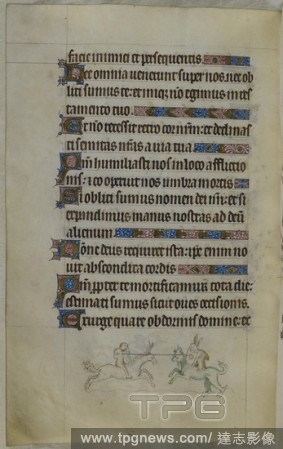 facie inimici et persequentis
Hec omnia venerunt super nos nec ob
liti sumus te: et iniq; no egimus in tes
tamento tuo.
Et no recessit retro cor nrm: et declinas
ti semitas nras a via tua
Qm humiliasti nos in loco afflictio
nis: et cooperuit nos umbra mortis
Si obliti sumus nomen dei nri: et si
expandimus manus nostras ad deu
alienum
Nonne deus requiret ista: ipe enim no
vit abscondita cordis
Qm ppter te mortificamur tota die:
estimati sumus sicut oves occisionis.
Exurge quare obdormis domine: et
TPG
www.tpgnews.com/達志影像